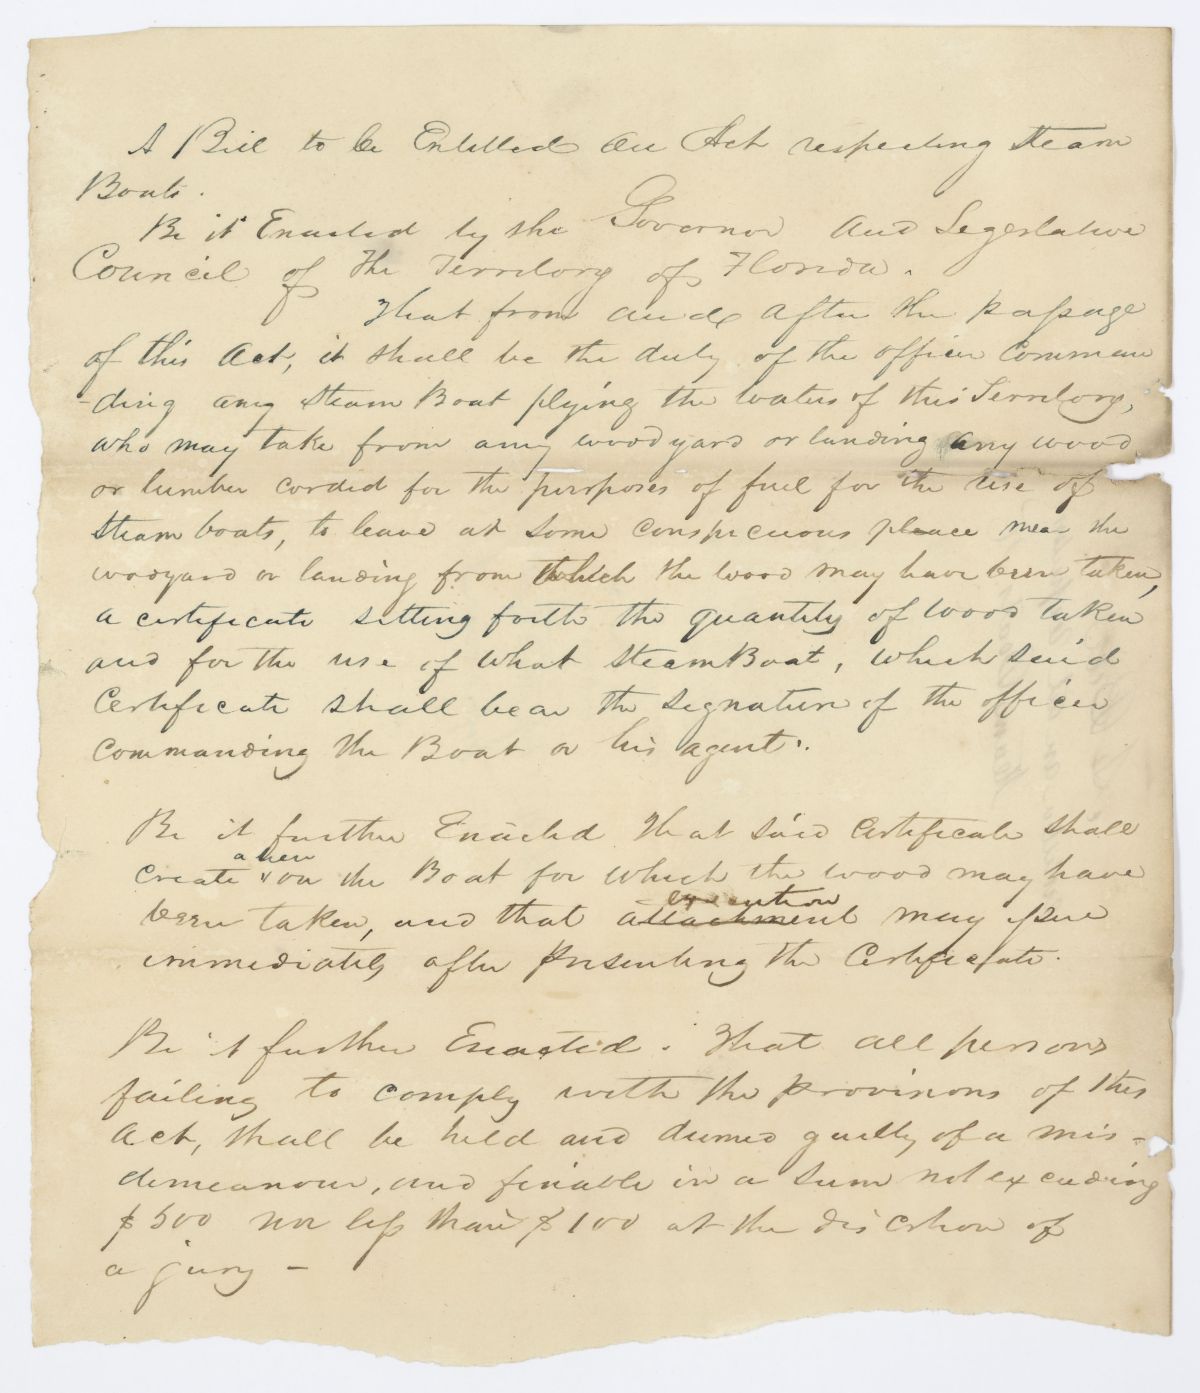 A Bill to be Entitled An Act respecting Steam
Boats.
Be it Enacted by the Governor And Legislative
Council of The Territory of Florida.
That from and After the passage
of this Act, it shall be the duty of the officer Comman
-ding any Steam Boat plying the waters of this Territory,
who may take from any woodyard or landing any wood
or lumber corded for the purposes of fuel for the use of
Steam boats, to leave at some conspicuous place near the
woodyard or landing from which the wood may have been taken,
a certificate setting forth the quantity of wood taken
and for the use of what SteamBoat, which said
Certificate shall bear the signature of the officer
commanding the Boat or his agent.
Be it further Enacted That said Certificate shall
a lien
create on the Boat for which the wood may have
execution
been taken, and that attachment may issue
immediately after presenting the Certificate.
Be it further Enacted. That all persons
failing to comply with the provisions of this
Act, shall be held and deemed guilty of a mis-
demeanour, and finable in a sum not exceeding
$500 nor less than $100 at the discretion of
a jury -